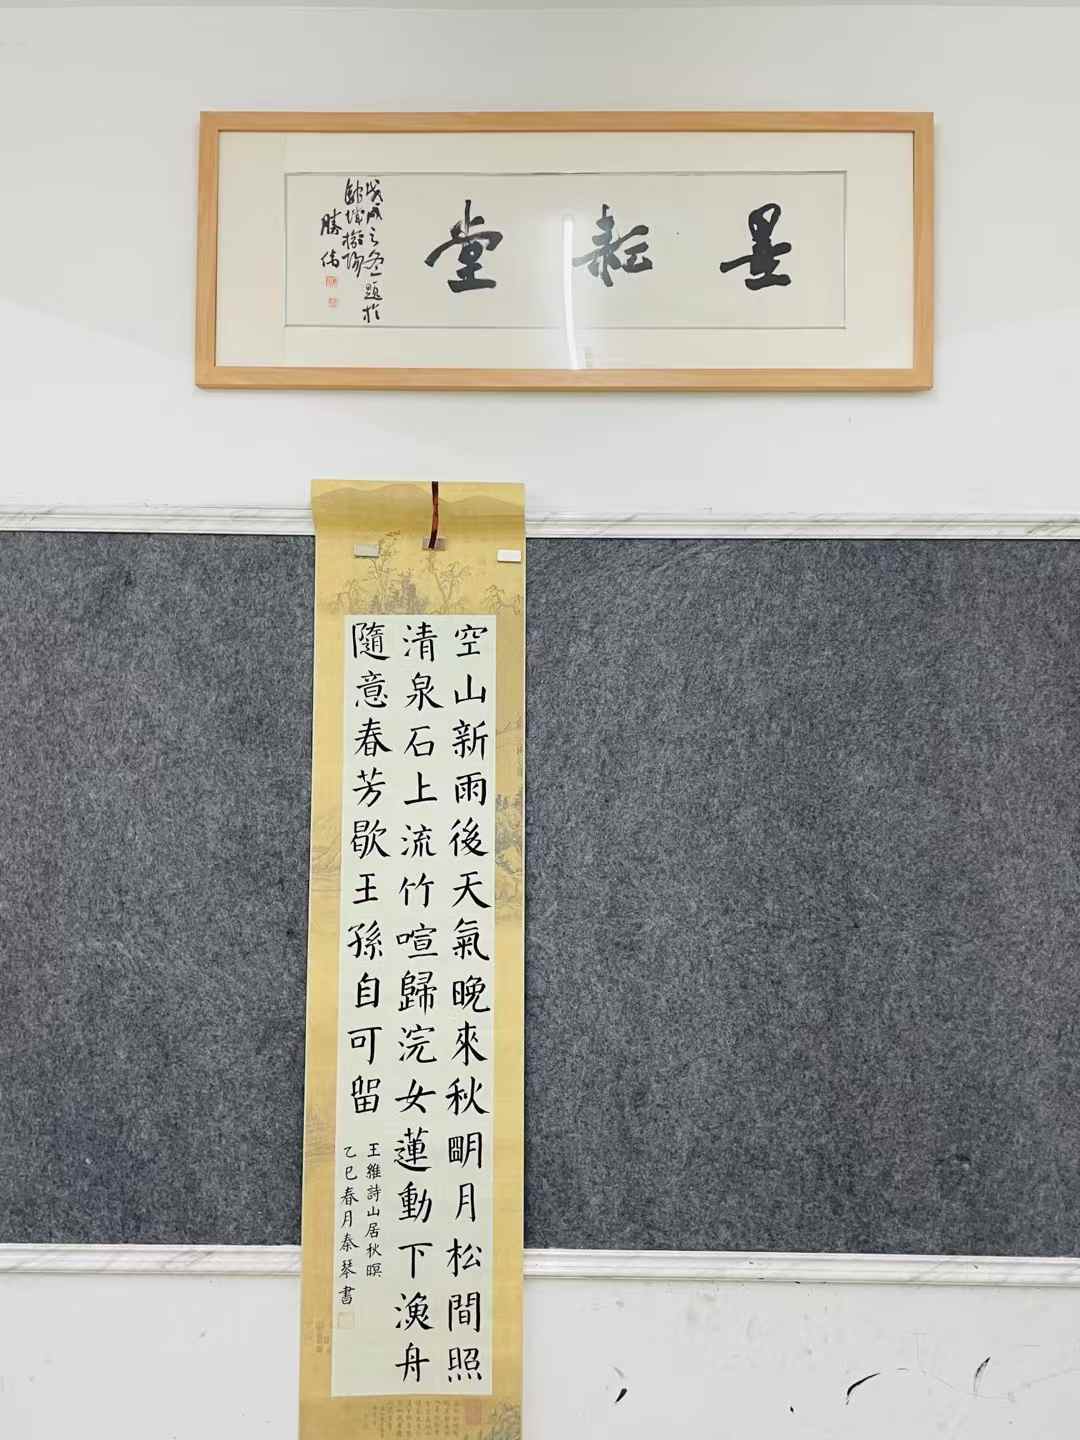 墨耘堂
戊戌之冬題於
勝偉
空山新雨後天氣晚來秋朙月松間照
清泉石上流竹喧歸浣女蓮動下漁舟
隨意春芳歇王孫自可留
王維詩山居秋暝
乙巳春月秦琴書